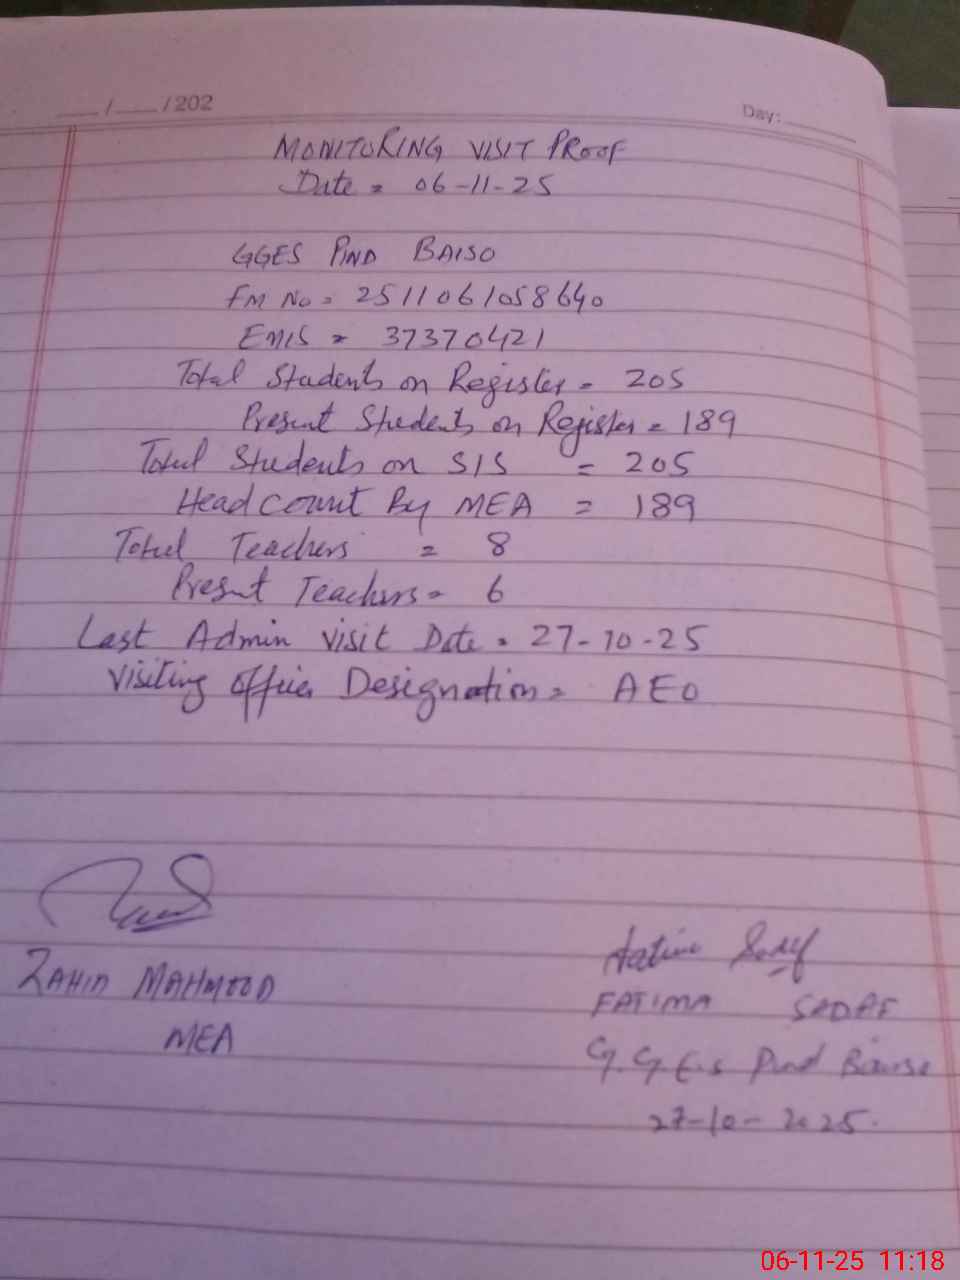 ___/___/202
Day:
MONITORING VISIT PROOF
Date = 06-11-25
GGES PIND BAISO
FM No = 2511061058640
EMIS = 37370421
Total Students on Register = 205
Present Students on Register = 189
Total Students on SIS = 205
Head count By MEA = 189
Total Teachers = 8
Present Teachers = 6
Last Admin visit Date = 27-10-25
Visiting Officer Designation = AEO
ZAHID MAHMOOD
MEA
Fatima Sadaf
FATIMA SADAF
G.G.E.S Pind
27-10-2025.
06-11-25 11:18